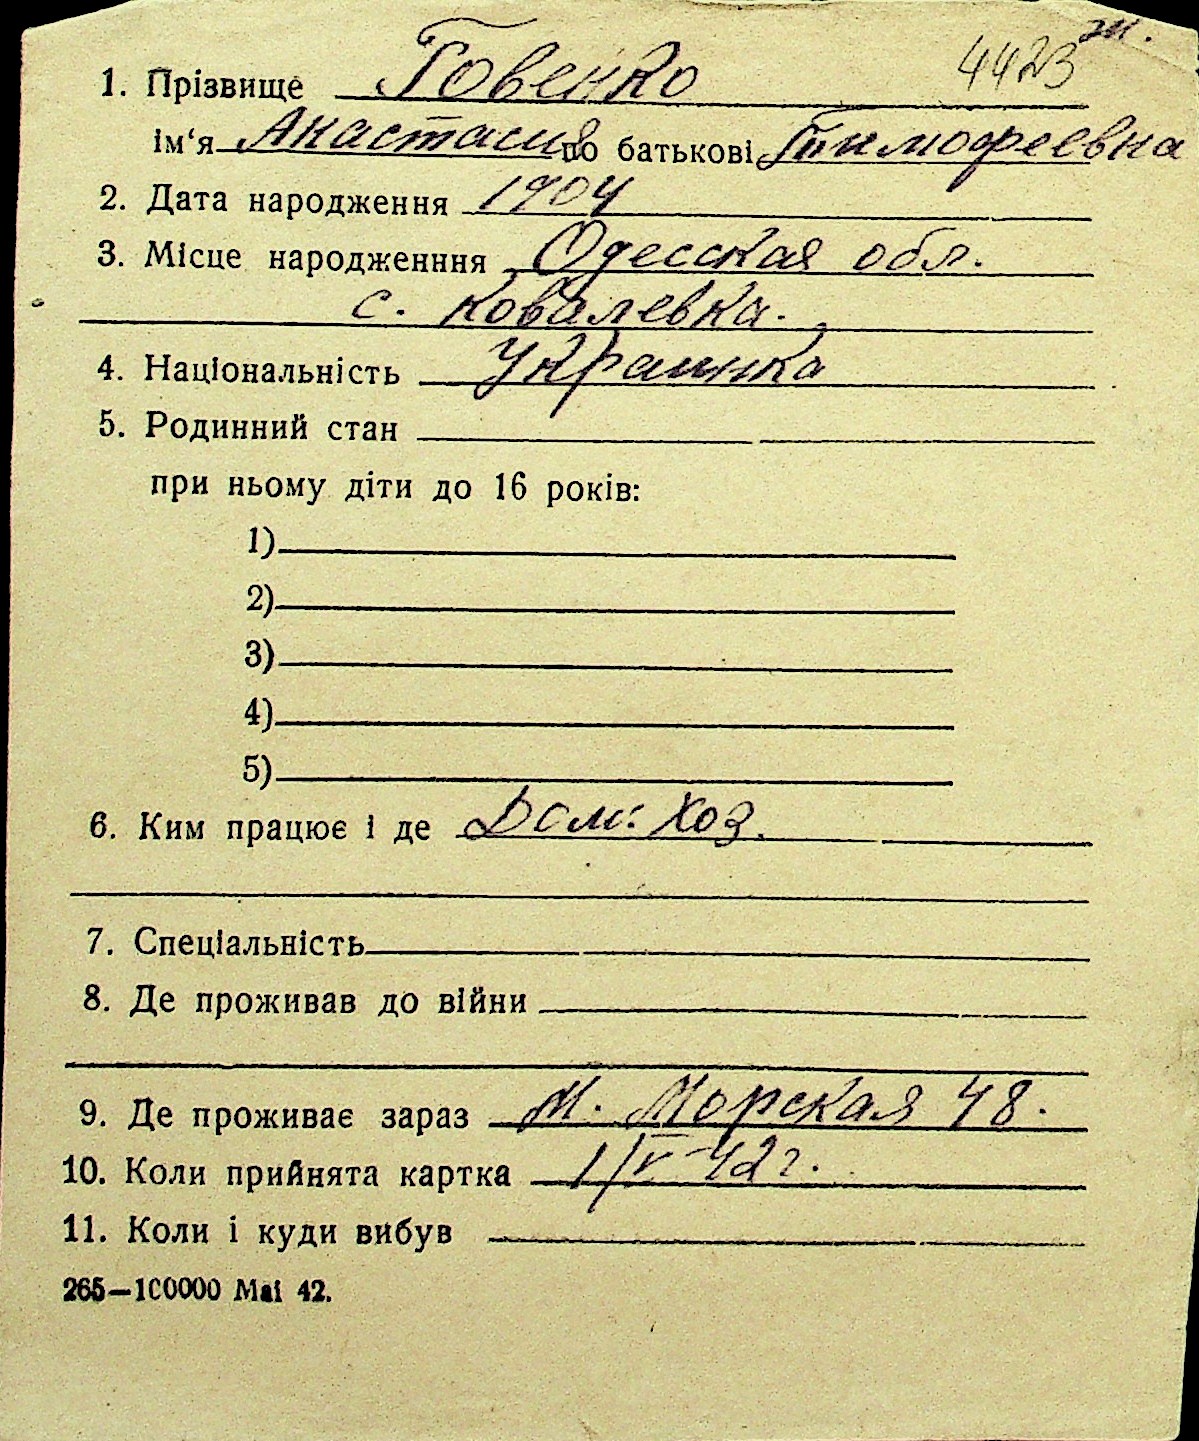 4423 эт.
1. Прізвище Говенко
ім‘я Анастасия по батькові Тимофеевна
2. Дата народження 1904
3. Місце народженння Одесская обл.
с. Ковалевка.
4. Національність Украинка
5. Родинний стан
при ньому діти до 16 років:
1)
2)
3)
4)
5)
6. Ким працює і де Дом. Хоз.
7. Спеціальність
8. Де проживав до війни
9. Де проживає зараз М. Морская 48.
10. Коли прийнята картка 1/V-42 г.
11. Коли і куди вибув
265—100000 Маі 42.